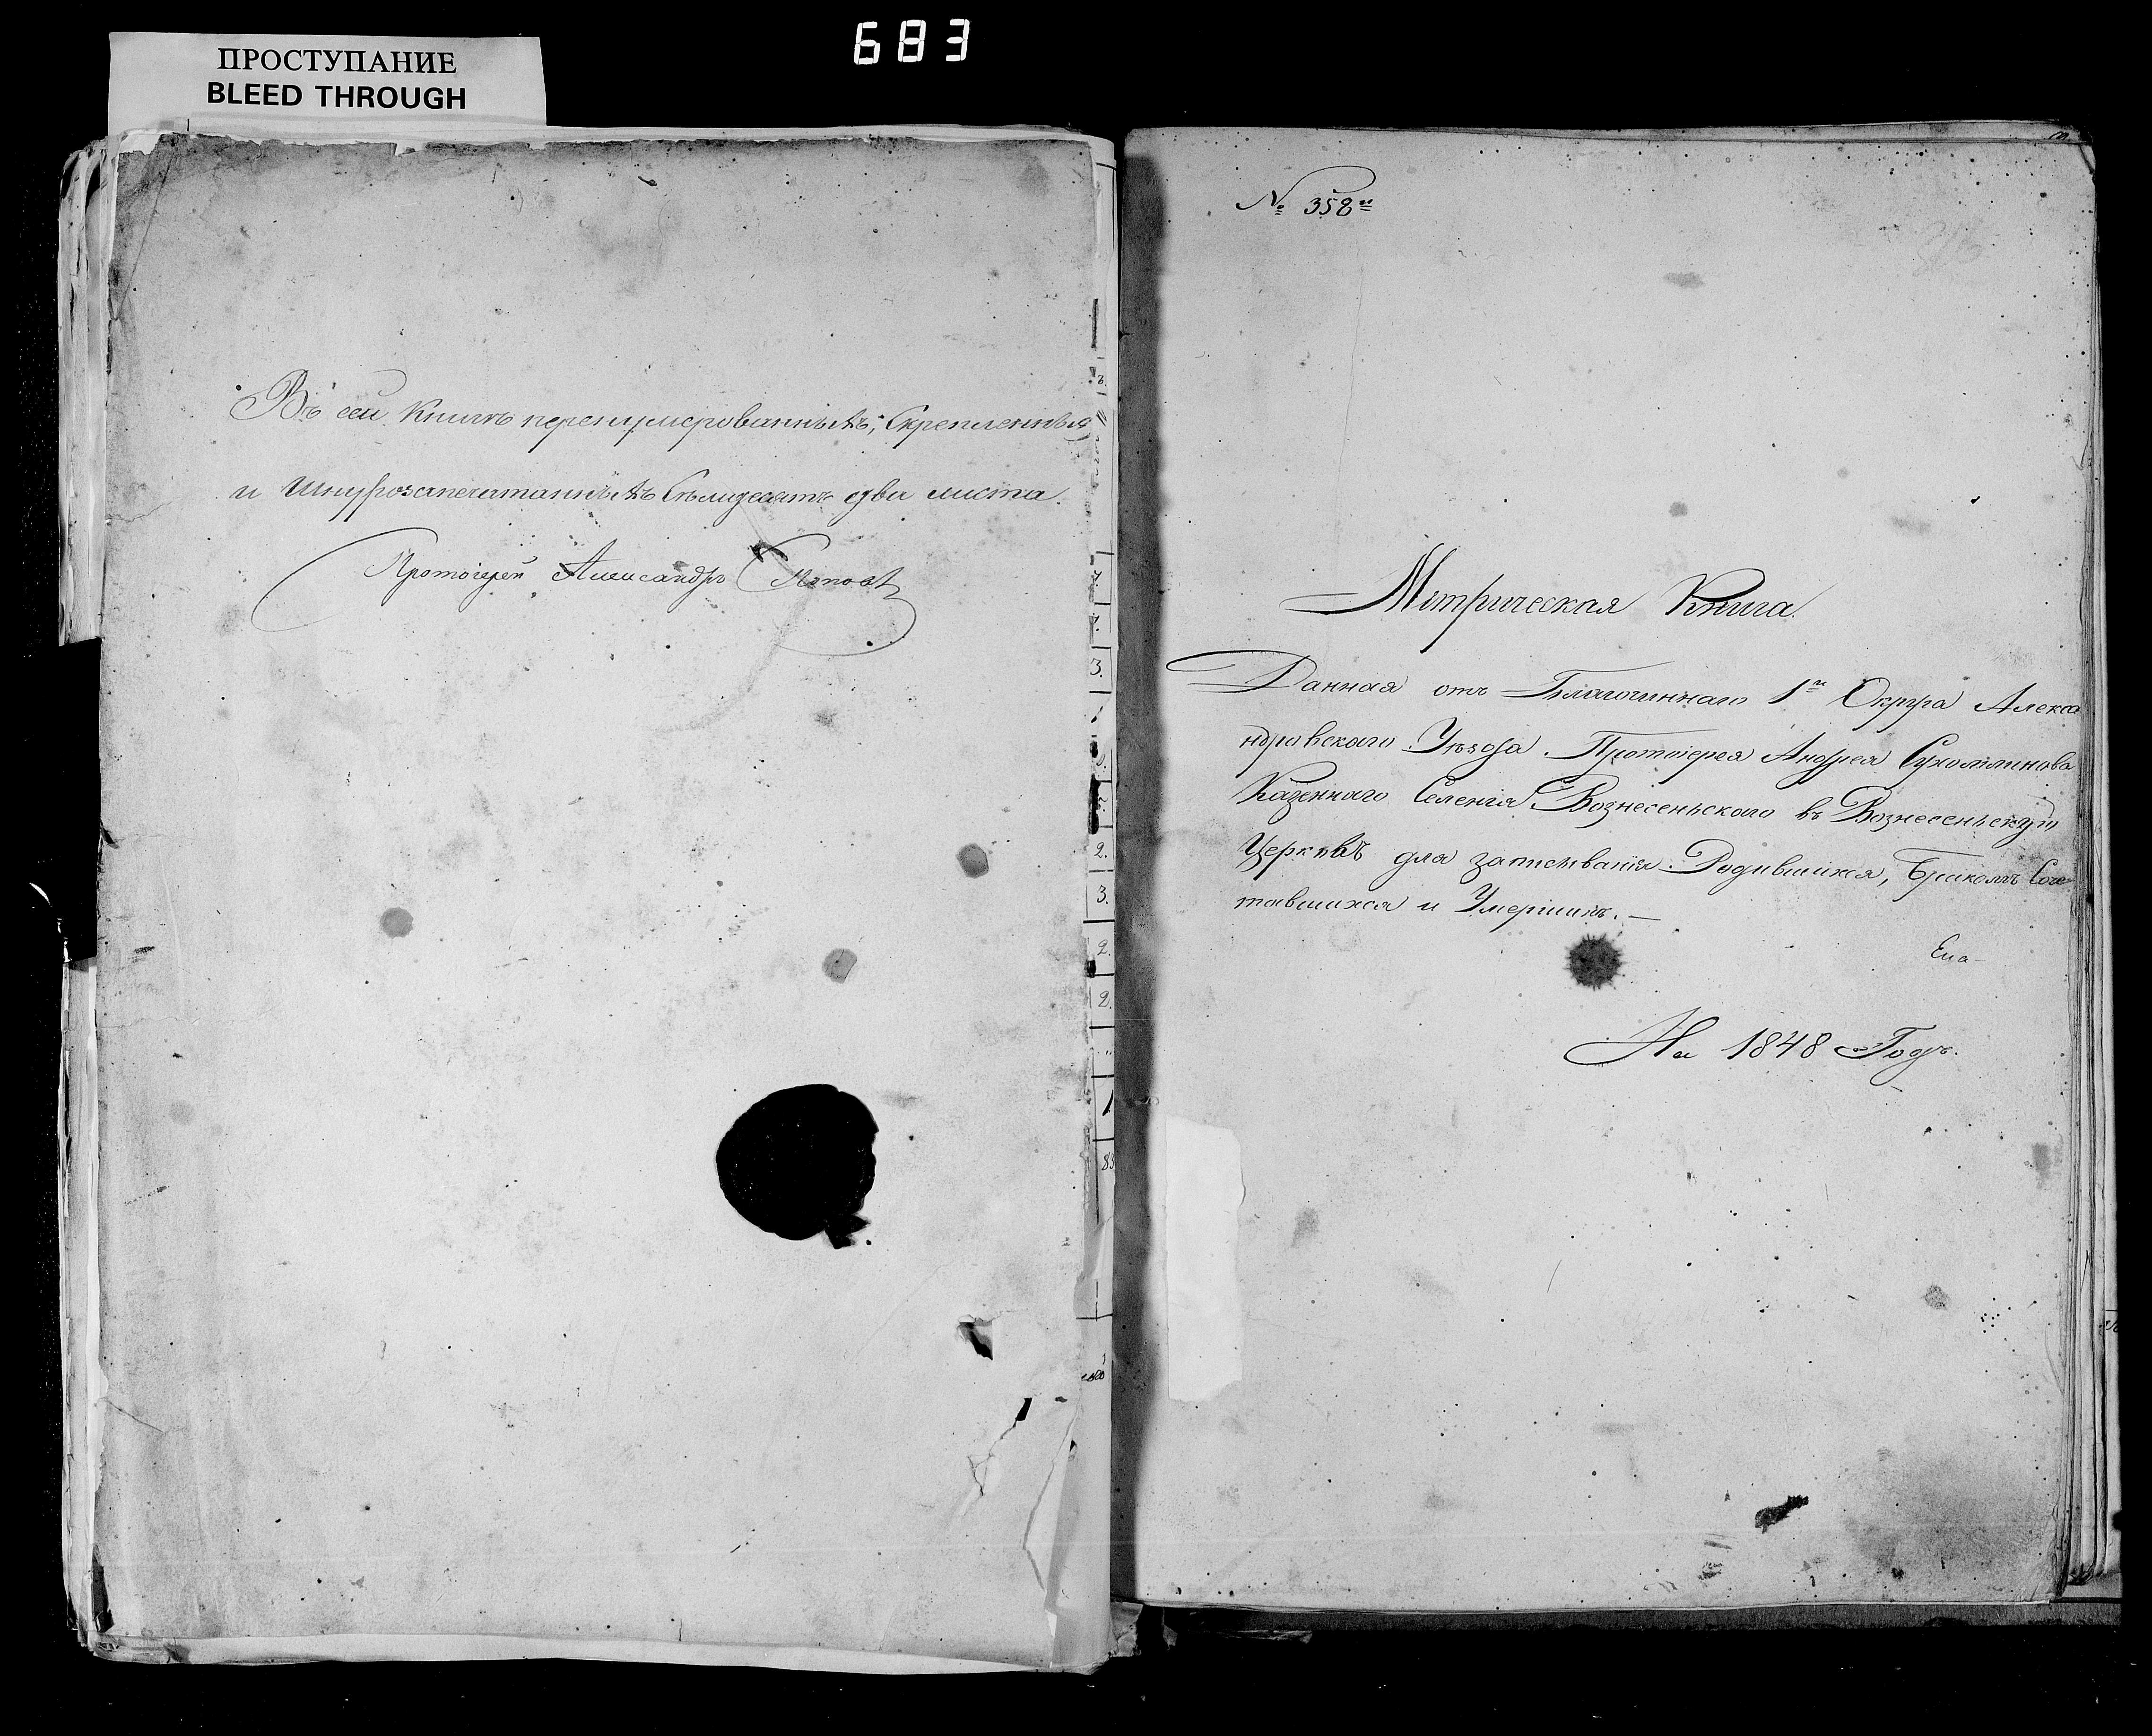 683
ПРОСТУПАНИЕ
BLEED THROUGH
Въ сей Книгѣ перенумерованныхъ, Скрепленныхъ
и Шнурозапечатанныхъ Сѣмдесятъ два листа.
Протоіерей Александръ
№ 358й
Метрическая Книга
Данная отъ Благочиннаго 1го Округа Алекса
ндровскаго Уѣзда Протоіерея Андрея Сухомлинова
Казеннаго Селенія Вознесеньского въ Вознесеньскую
Церковь для записыванія Родившихся, Бракомъ Соче
тавшихся и Умершихъ. —
На 1848 Годъ.